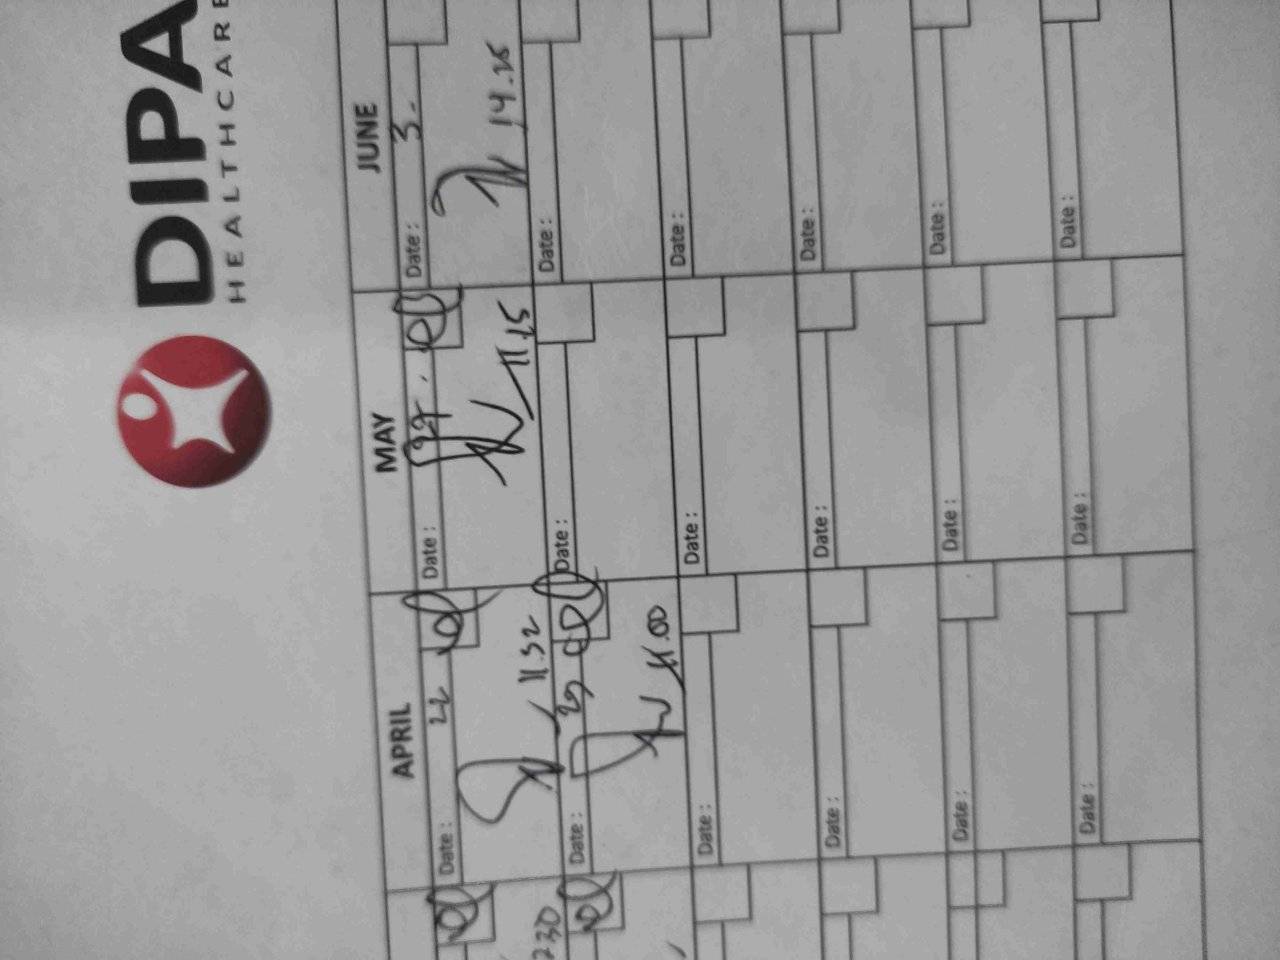 DIPA
HEALTHCARE
APRIL
MAY
JUNE
Date : 22
Date : 27.
Date : 3-
11.32
11.25
14.25
230
Date : 29
Date :
Date :
11.00
Date :
Date :
Date :
Date :
Date :
Date :
Date :
Date :
Date :
Date :
Date :
Date :